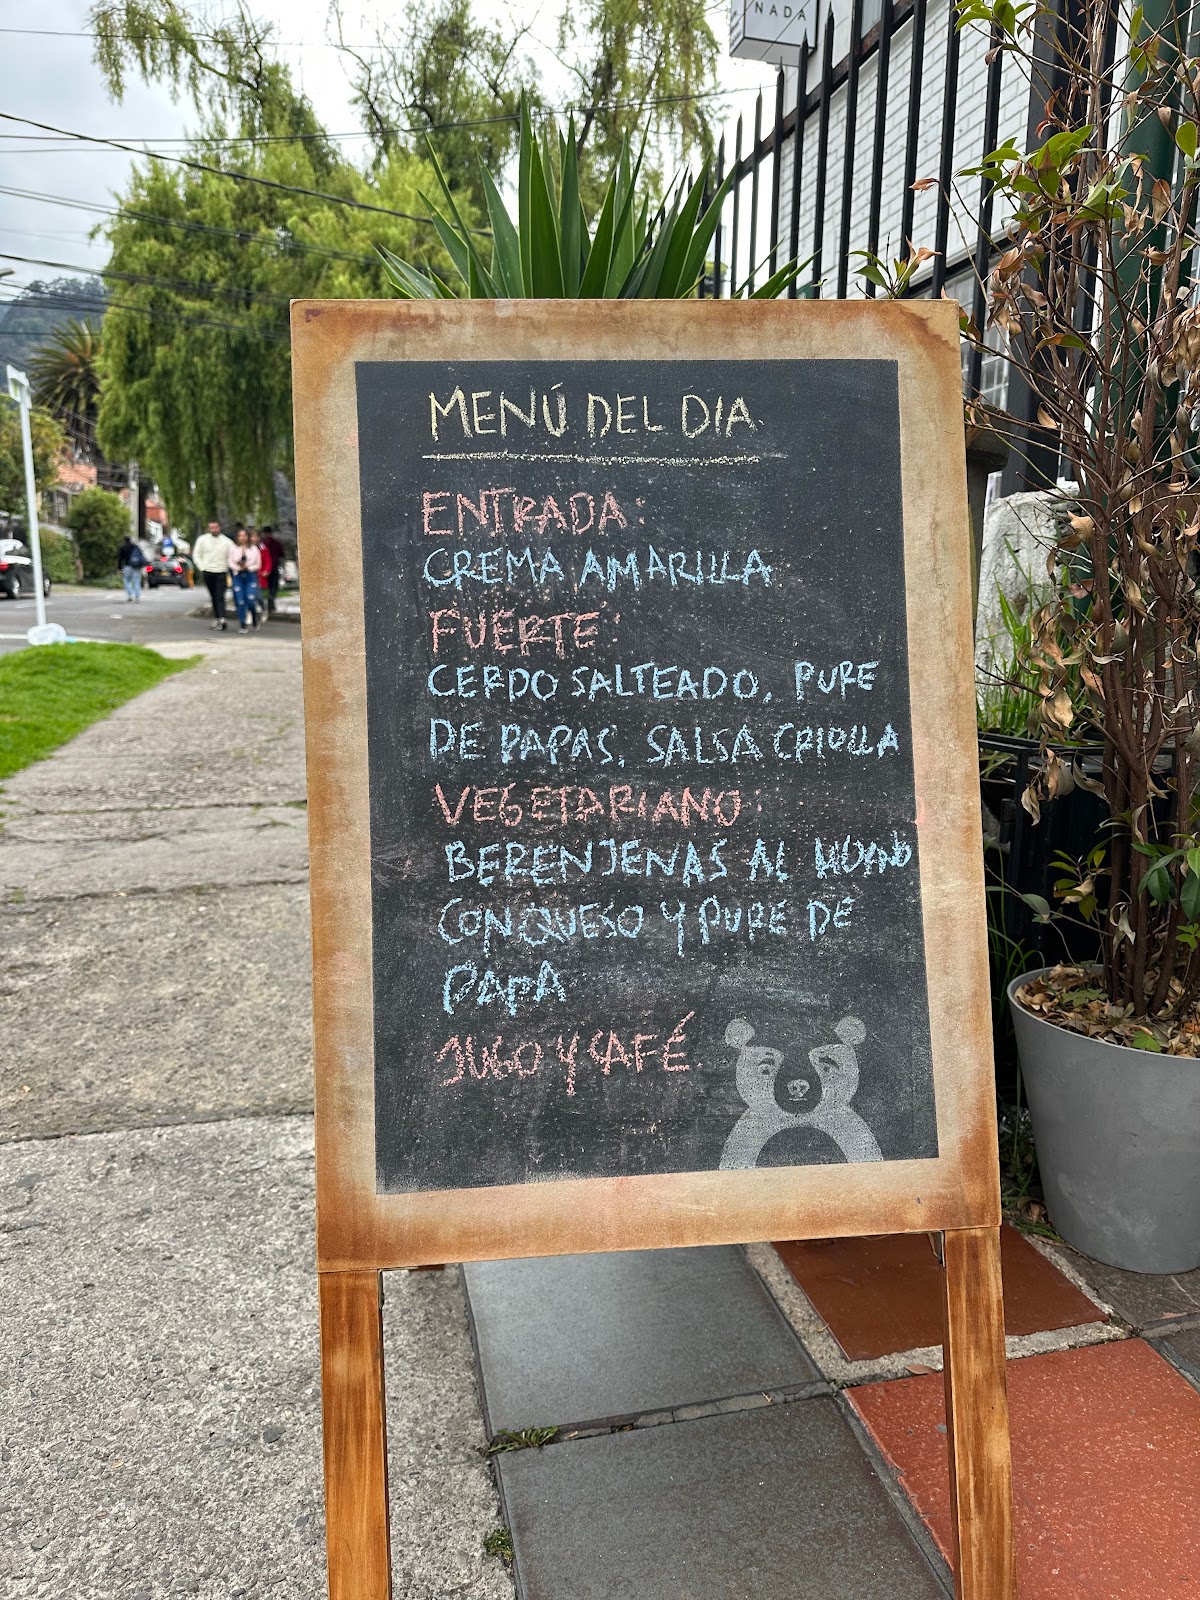 NADA
MENÚ DEL DIA.
ENTRADA:
CREMA AMARILLA
FUERTE:
CERDO SALTEADO, PURE
DE PAPAS, SALSA CRIOLLA
VEGETARIANO:
BERENJENAS AL HORNO
CON QUESO Y PURE DE
PAPA
JUGO Y CAFÉ